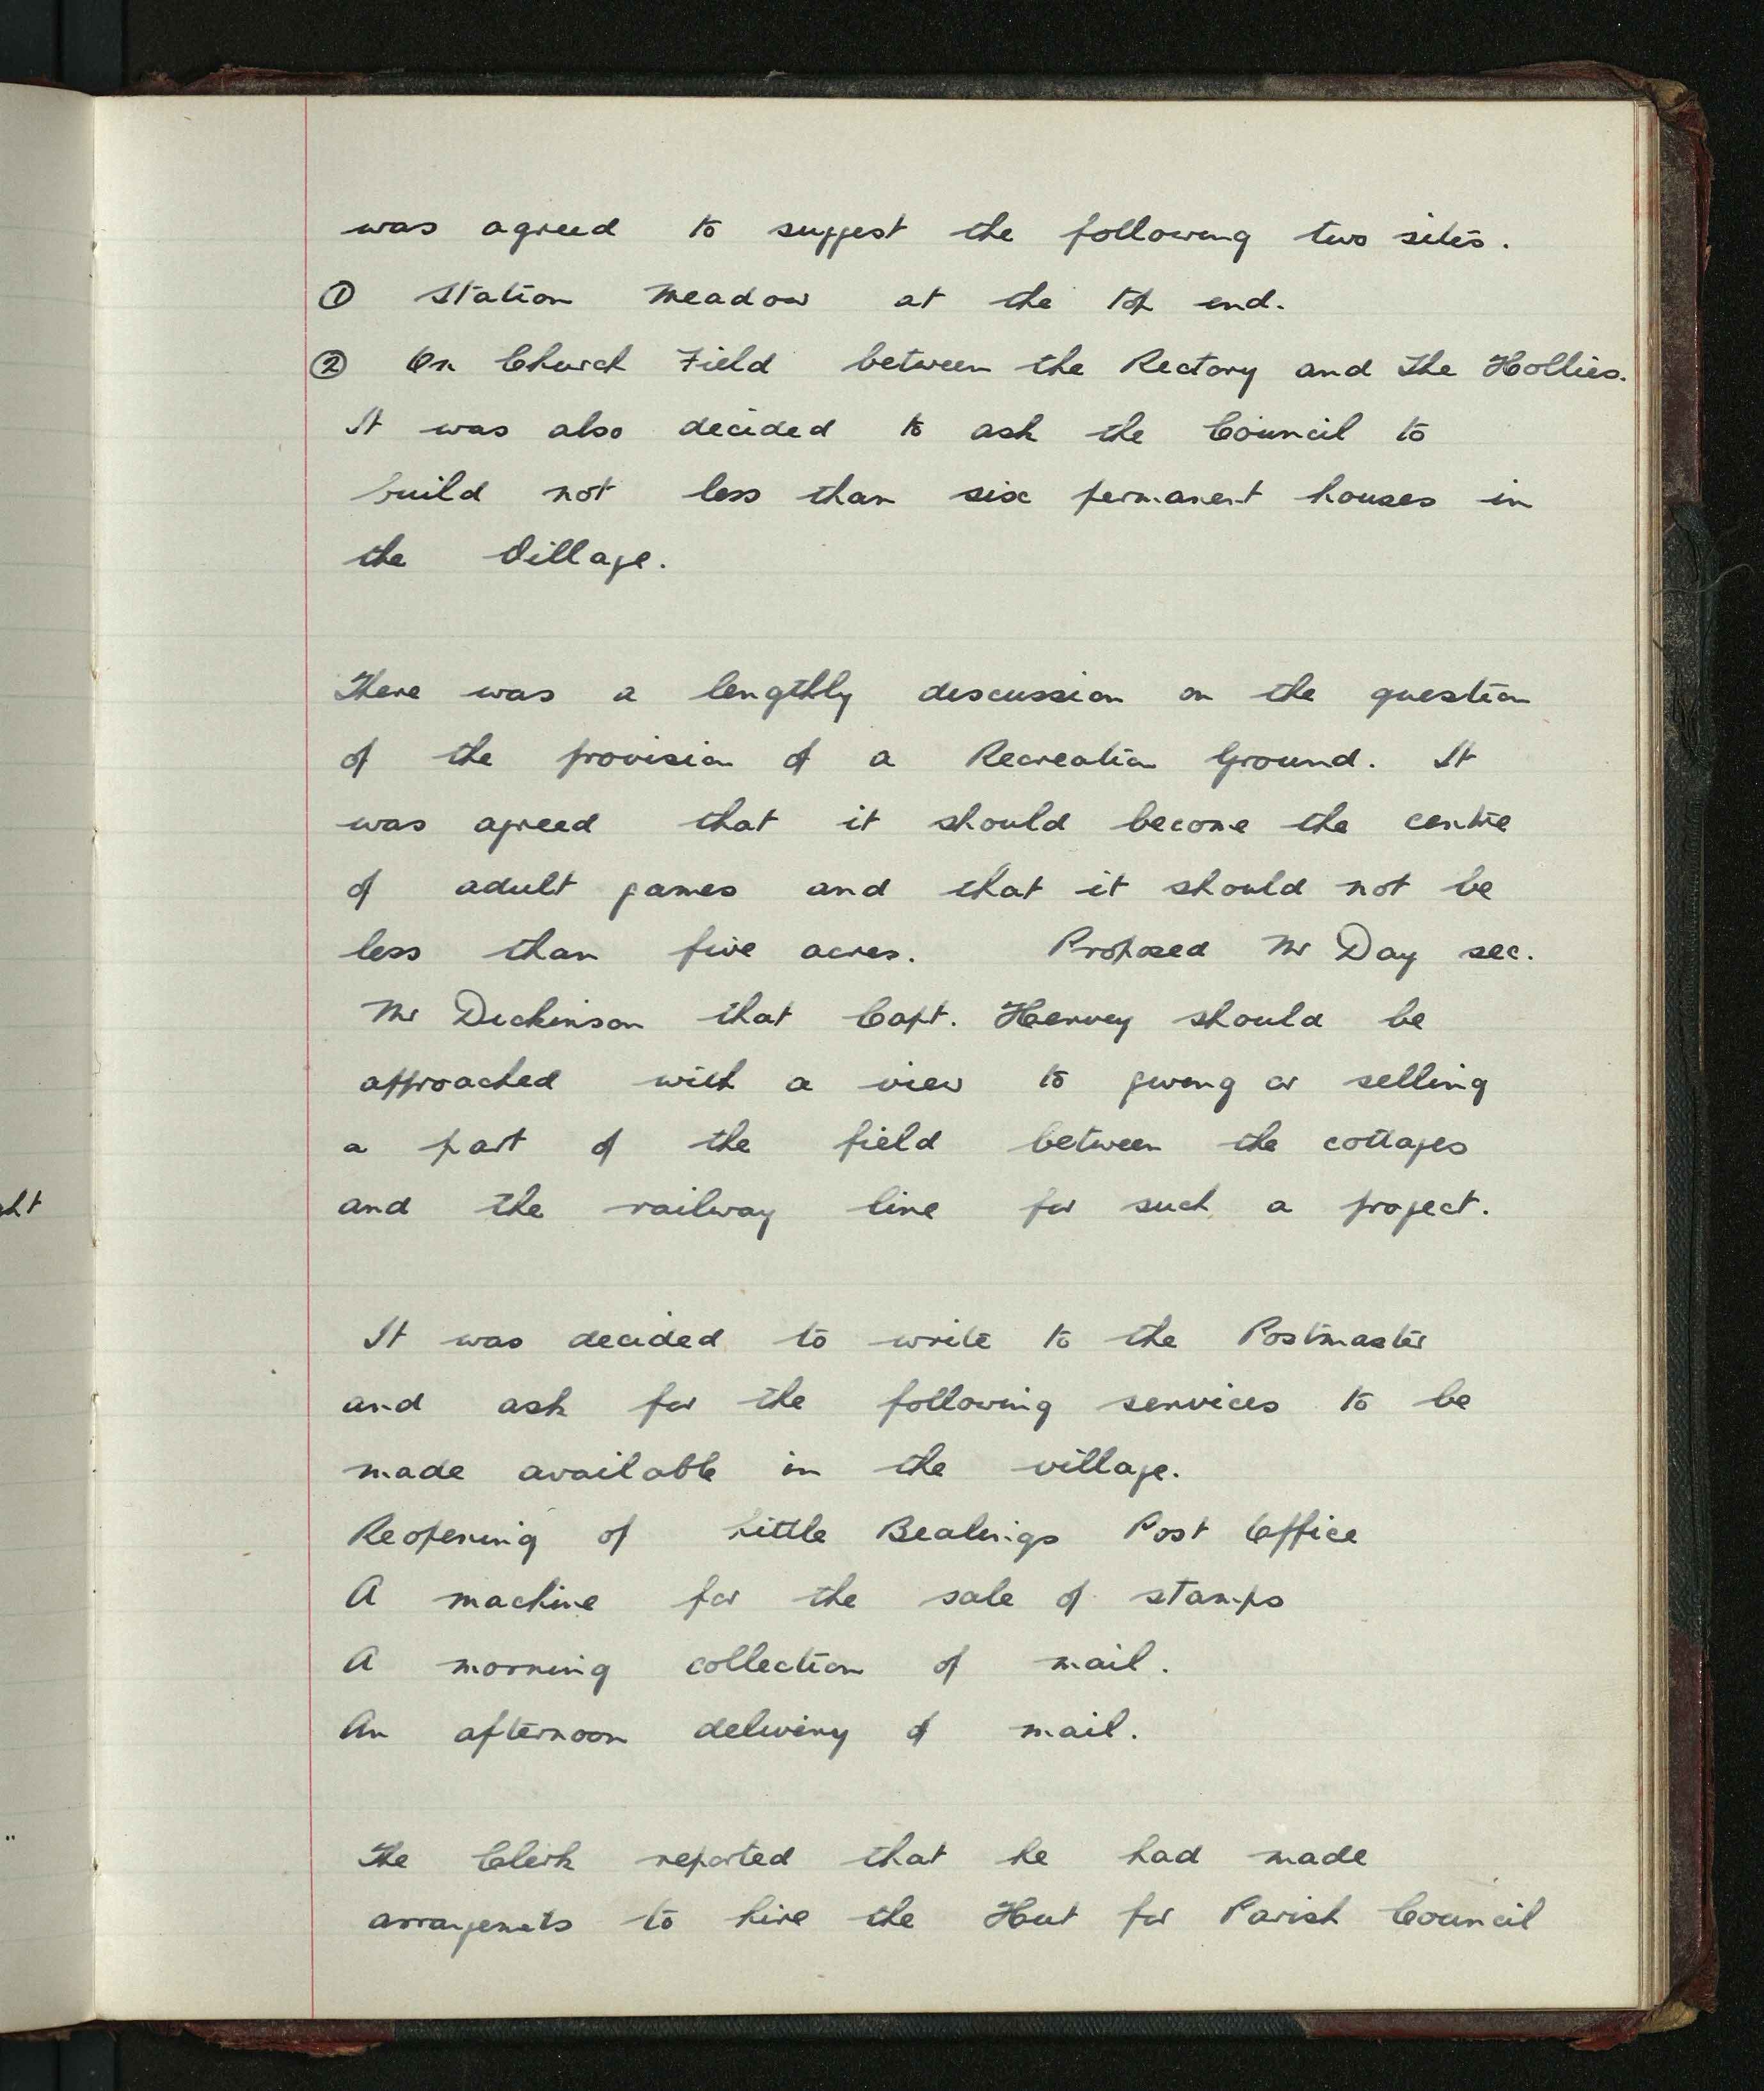 was agreed to suggest the following two sites.
① Station Meadow at the top end.
② On Church Field between the Rectory and The Hollies.
It was also decided to ask the Council to
build not less than six permanent houses in
the Village.
There was a lengthly discussion on the question
of the provision of a Recreation Ground. It
was agreed that it should become the centre
of adult games and that it should not be
less than five acres. Proposed Mr Day sec.
Mr Dickinson that Capt. Hervey should be
approached with a view to giving or selling
a part of the field between the cottages
and the railway line for such a project.
It was decided to write to the Postmaster
and ask for the following services to be
made available in the village.
Reopening of Little Bealings Post Office
A machine for the sale of stamps
A morning collection of mail.
An afternoon delivery of mail.
The Clerk reported that he had made
arrangements to hire the Hut for Parish Council